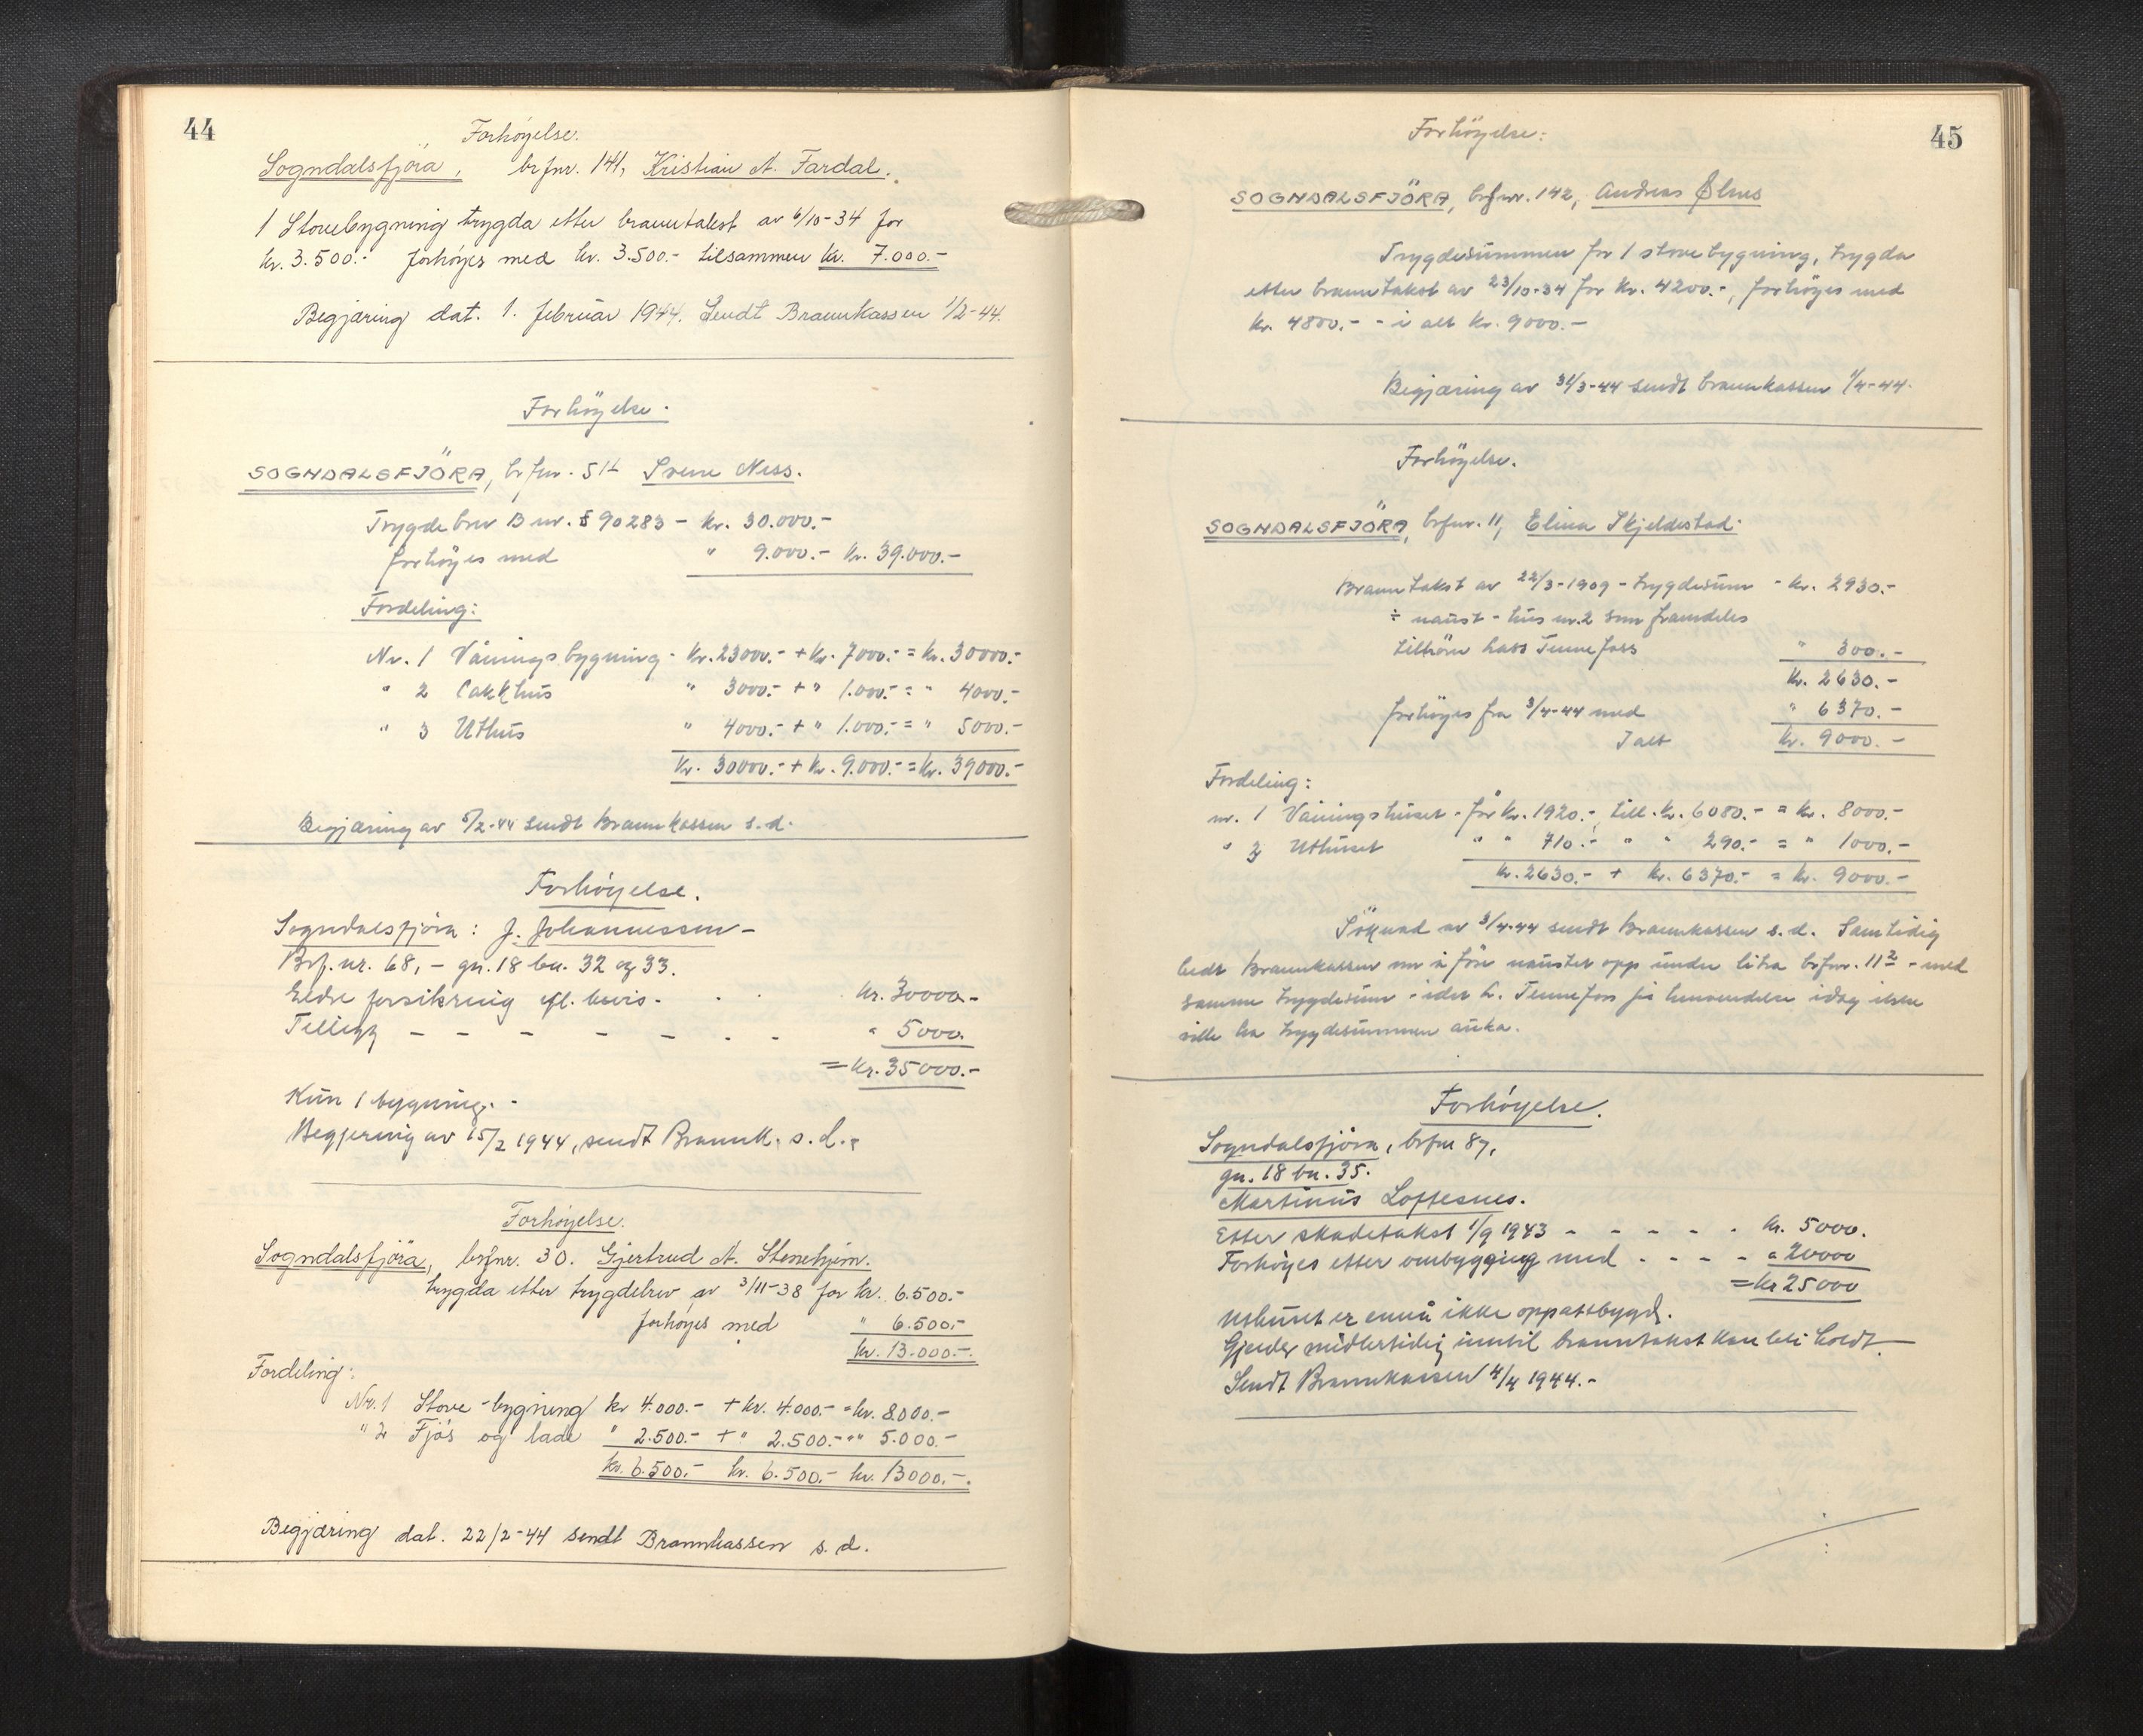 44
Forhøyelse.
Sogndalsfjöra, br.fnr. 141, Kristian A. Fardal.
1 Stovebygning trygda etter branntakst av 6/10-34 for
kr. 3.500.- forhøyes med kr. 3.500.- tilsammen kr. 7.000.-
Begjæring dat. 1. februar 1944. Sendt Brannkassen 1/2-44.
Forhöyelse.
SOGNDALSFJÖRA, br.fnr. 51b Svene Ness.
Trygdebrev B nr. 590283 - kr. 30.000.-
forhöyes med " 9.000.- kr. 39.000.-
Fordeling:
Nr. 1 Våningsbygning - kr. 23000.- + kr. 7000.- = kr. 30000.-
" 2 Eakhus " 3000.- + " 1.000.- = " 4000.-
" 3 Uthus " 4000.- + " 1.000.- = " 5000.-
kr. 30000.- + kr. 9.000.- = kr. 39000.-
Begjæring av 5/2-44 sendt Brannkassen s.d.
Forhöyelse.
Sogndalsfjöra: J. Johannessen -
Brf. nr. 68, - gn. 18 bn. 32 og 33.
Eldre forsikring efl. bevis - kr. 30000.-
Tillegg - - - - - - - " 5000.
= kr. 35000.-
Kun 1 bygning. -
Begjering av 15/2 1944, sendt Brannk. s.d.
Forhöyelse.
Sogndalsfjöra, brfnr. 30. Gjertrud A. Stenehjem.
trygda etter trygdebrev av 3/11-38 for kr. 6.500.-
forhøyes med " 6.500.-
kr. 13.000.-
Fordeling:
Nr. 1 Stove-bygning kr 4.000.- + kr. 4.000.- = kr. 8.000.-
" 2 Fjös og lade " 2.500.- + " 2.500.- = " 5.000.-
kr. 6.500.- kr. 6.500.- kr. 13000.-
Begjæring dat. 22/2-44 sendt Brannkassen s.d.
45
Forhöyelse:
SOGNDALSFJÖRA, brfnr. 142, Andreas Ølnes
Trygdesummen for 1 stovebygning, trygda
etter branntakst av 23/10-34 for kr. 4200.-, forhöyes med
kr. 4800.- - i alt kr. 9000.-
Begjæring av 31/3-44 sendt brannkassen 1/4-44.
Forhöyelse.
SOGNDALSFJÖRA, brfnr. 11, Elina Skjeldestad.
Branntakst av 22/3-1909 - trygdesum - kr. 2930.-
÷ naust - hus nr. 2 som framdeles
tilhörer Lars Tennefoss " 300.-
kr. 2630.-
forhöyes fra 3/4-44 med " 6370.-
I alt kr. 9000.-
Fordeling:
nr. 1 Våningshuset - för kr. 1920.-, till. kr. 6080.- = kr. 8000.-
" 3 Uthuset " " 710.- " " 290.- = " 1000.-
kr. 2630.- + kr. 6370.- = kr. 9000.-
Söknad av 3/4-44 sendt Brannkassen s.d. Samtidig
bedt Brannkassen om å före naustet opp under litra brfnr. 112 - med
samme trygdesum - idet L. Tennefoss på henvendelse idag ikke
ville ha trygdesummen auka.
Forhöyelse.
Sogndalsfjöra, brfnr 87,
gn. 18 bn. 35.
Martinus Loftesnes.
Etter skadetakst 1/9 1943 - - - - - - kr. 5000.
Forhöyes etter ombygging med - - - - " 20000
= kr 25000
Uthuset er ennå ikke oppattbygd.
Gjelder midlertidig inntil branntakst kan bli holdt.
Sendt Brannkassen 4/4 1944.-